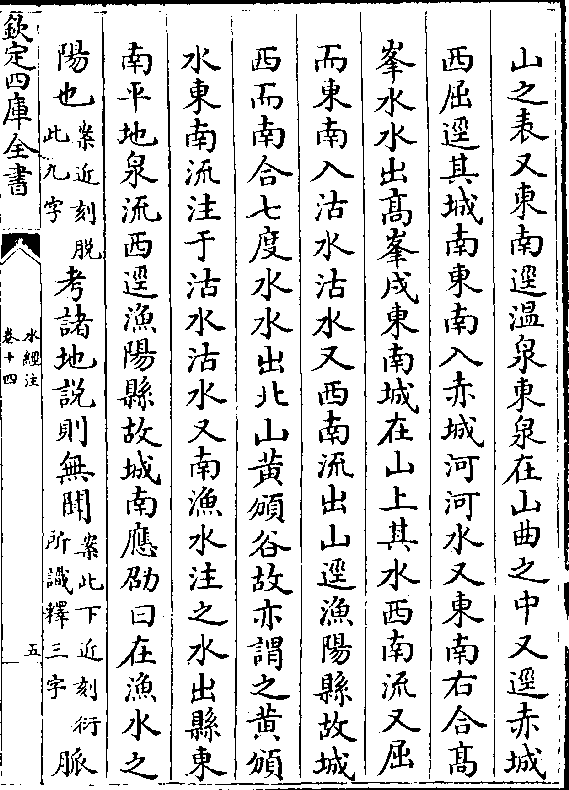 山之表又東南逕溫泉東泉在山曲之中又逕赤城
西屈逕其城南東南入赤城河河水又東南右合髙
峯水水出髙峯戍東南城在山上其水西南流又屈
而東南入沽水沽水又西南流出山逕漁陽縣故城
西而南合七度水水出北山黄頒谷故亦謂之黄頒
水東南流注于沽水沽水又南漁水注之水出縣東
南平地泉流西逕漁陽縣故城南應劭曰在漁水之
陽也案近刻脱此九字考諸地説則無聞案此下近刻衍所識釋三字脈
欽定四庫全書
水經注
卷十四
五